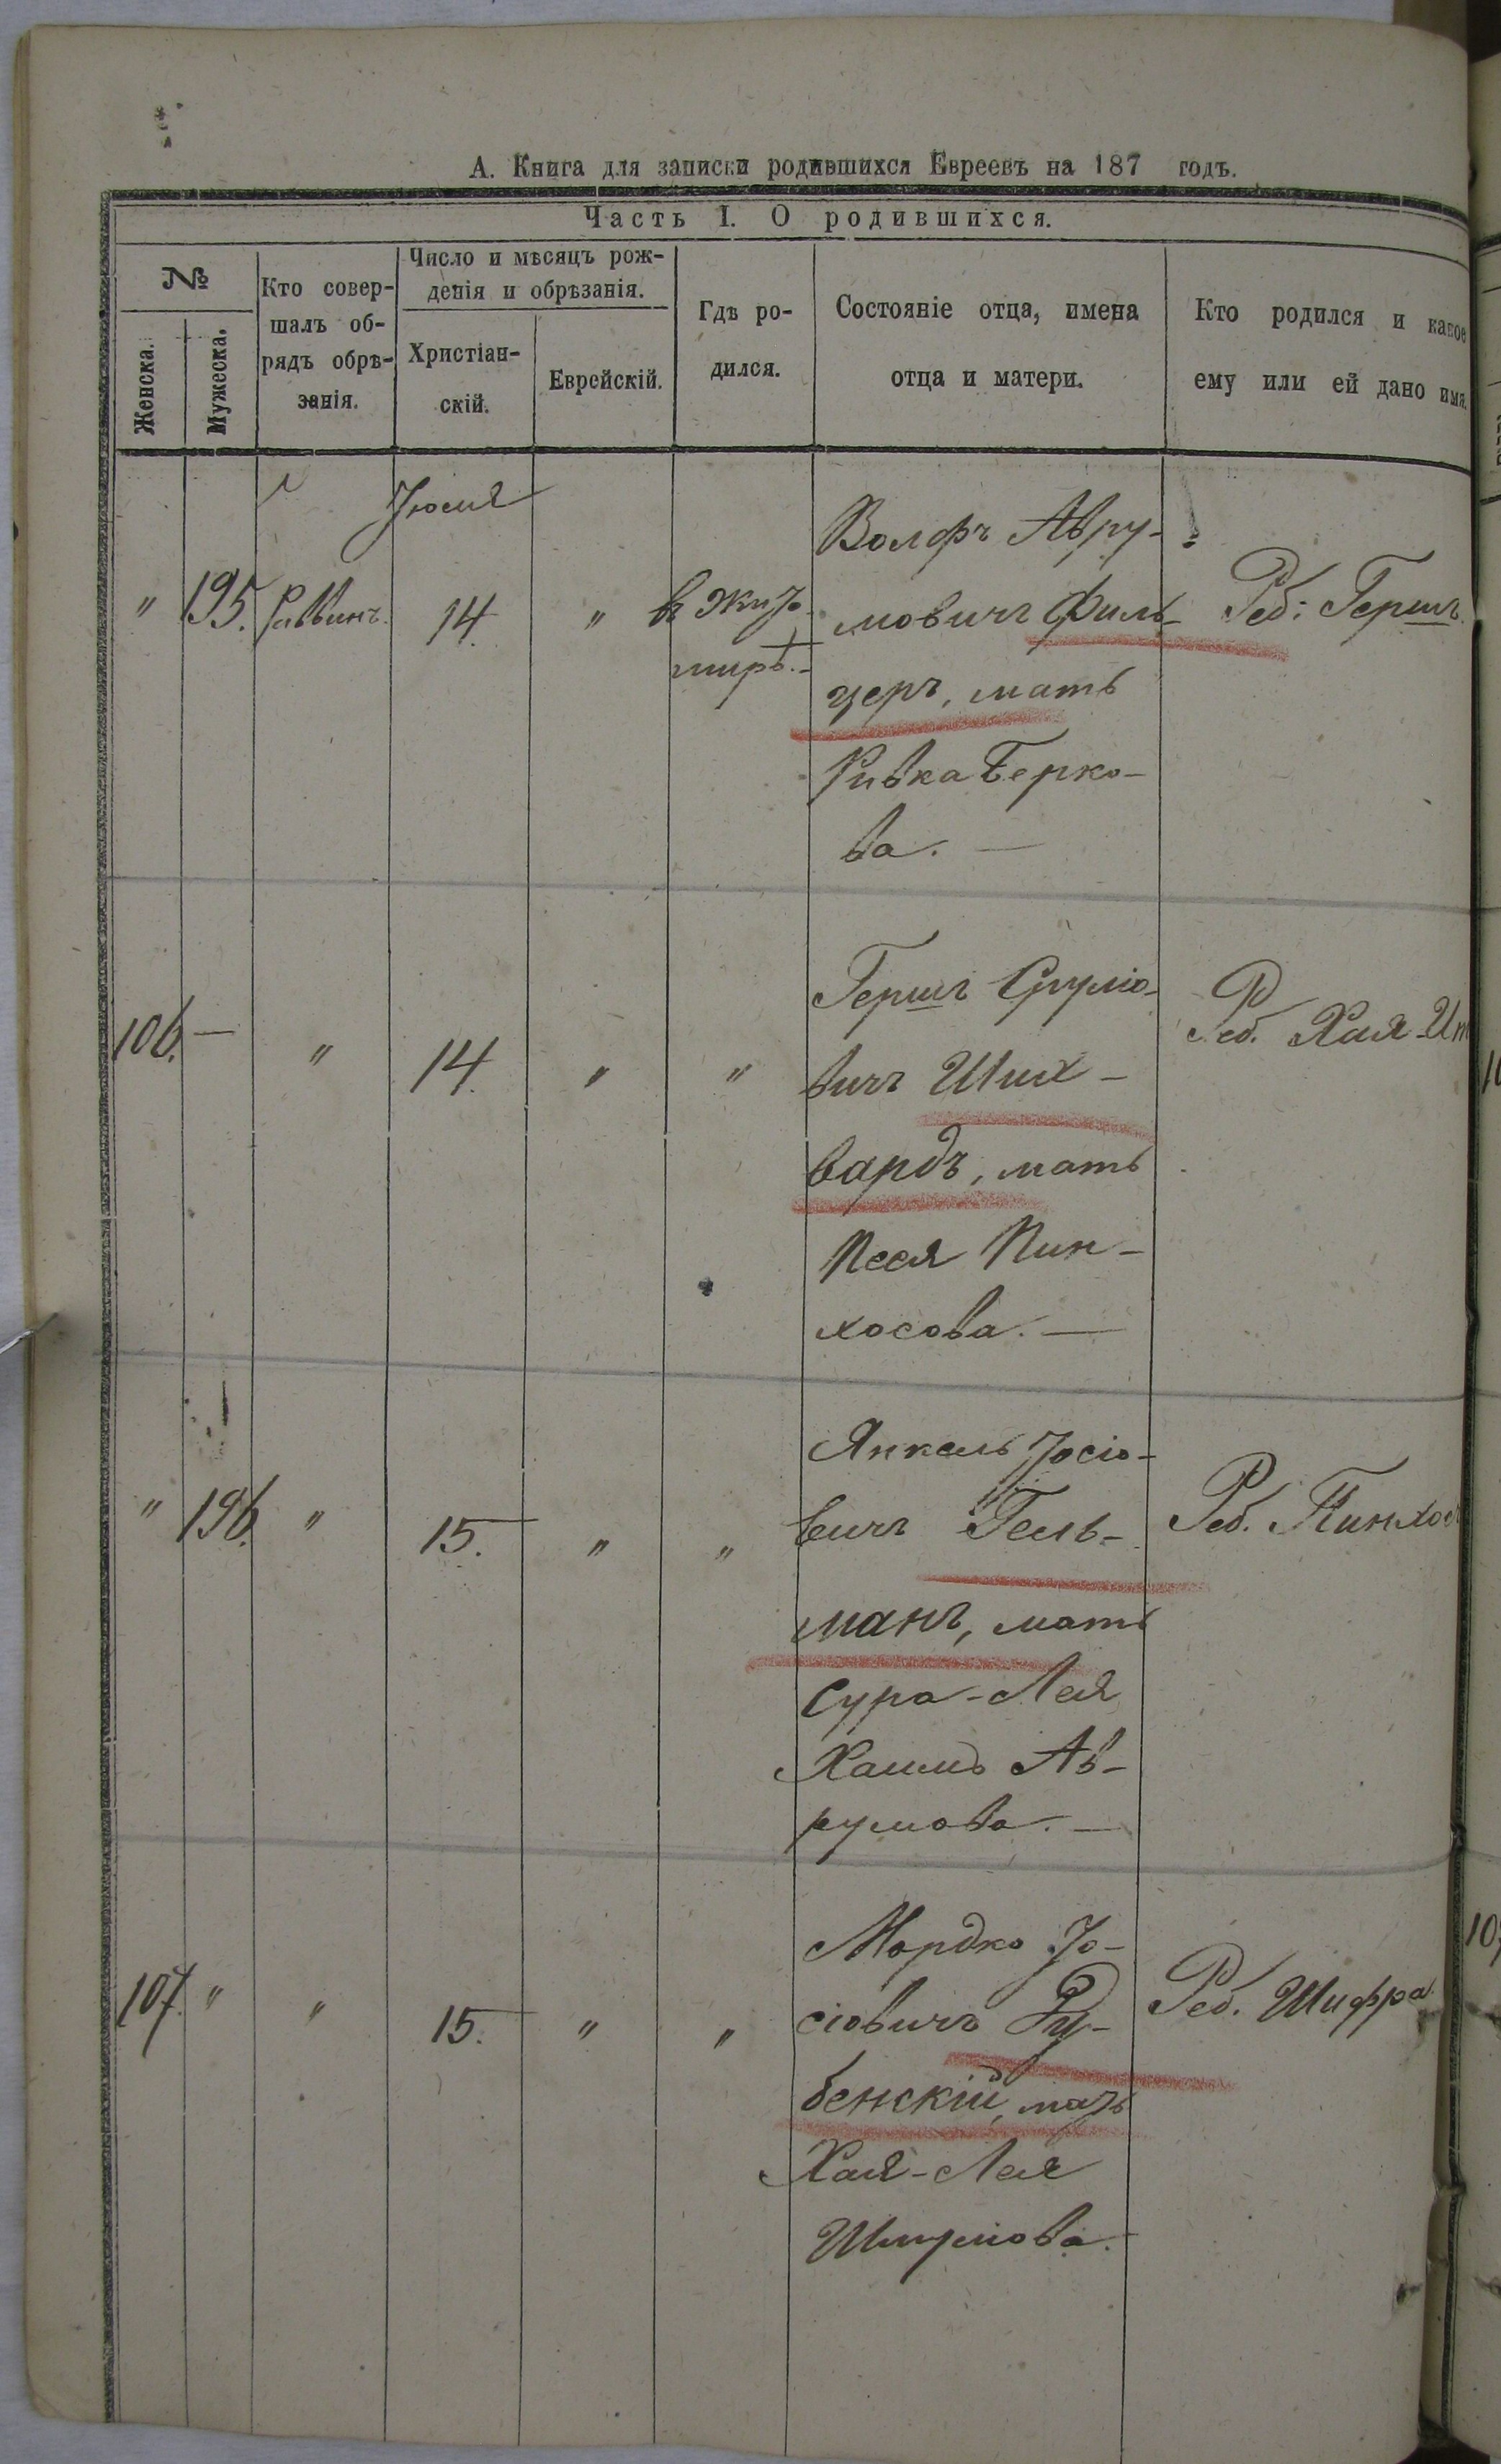 А. Книга для записки родившихся Евреевъ на 187 годъ.
Часть I. О родившихся.
№
Женска.
Мужеска.
Кто совер-
шалъ об-
рядъ обрѣ-
занія.
Число и мѣсяцъ рож-
денія и обрѣзанія.
Христіан-
скій.
Еврейскій.
Гдѣ ро-
дился.
Состояніе отца, имена
отца и матери.
Кто родился и какое
ему или ей дано имя.
" 195. Раввинъ. 14. "
Волфъ Авру-
мовичъ Филь-
церъ, мать
Ривка Берко-
ва. —
Реб: Гершъ.
106. — " 14. " "
Гершъ Сруліо-
вичъ Ших-
вардъ, мать
Песя Пин-
хосова. —
Реб. Хая-
" 196. " 15. " "
Янкель Іосіо-
вичъ Гель-
манъ, мать
Сура-Лея
Хаимъ Ав-
румова. —
Реб. Пинхос
107. " " 15. " "
Мордко Іо-
сіовичъ Ру-
бенскій, мать
Хая-Лея
Шмулова.
Реб. Шифра.